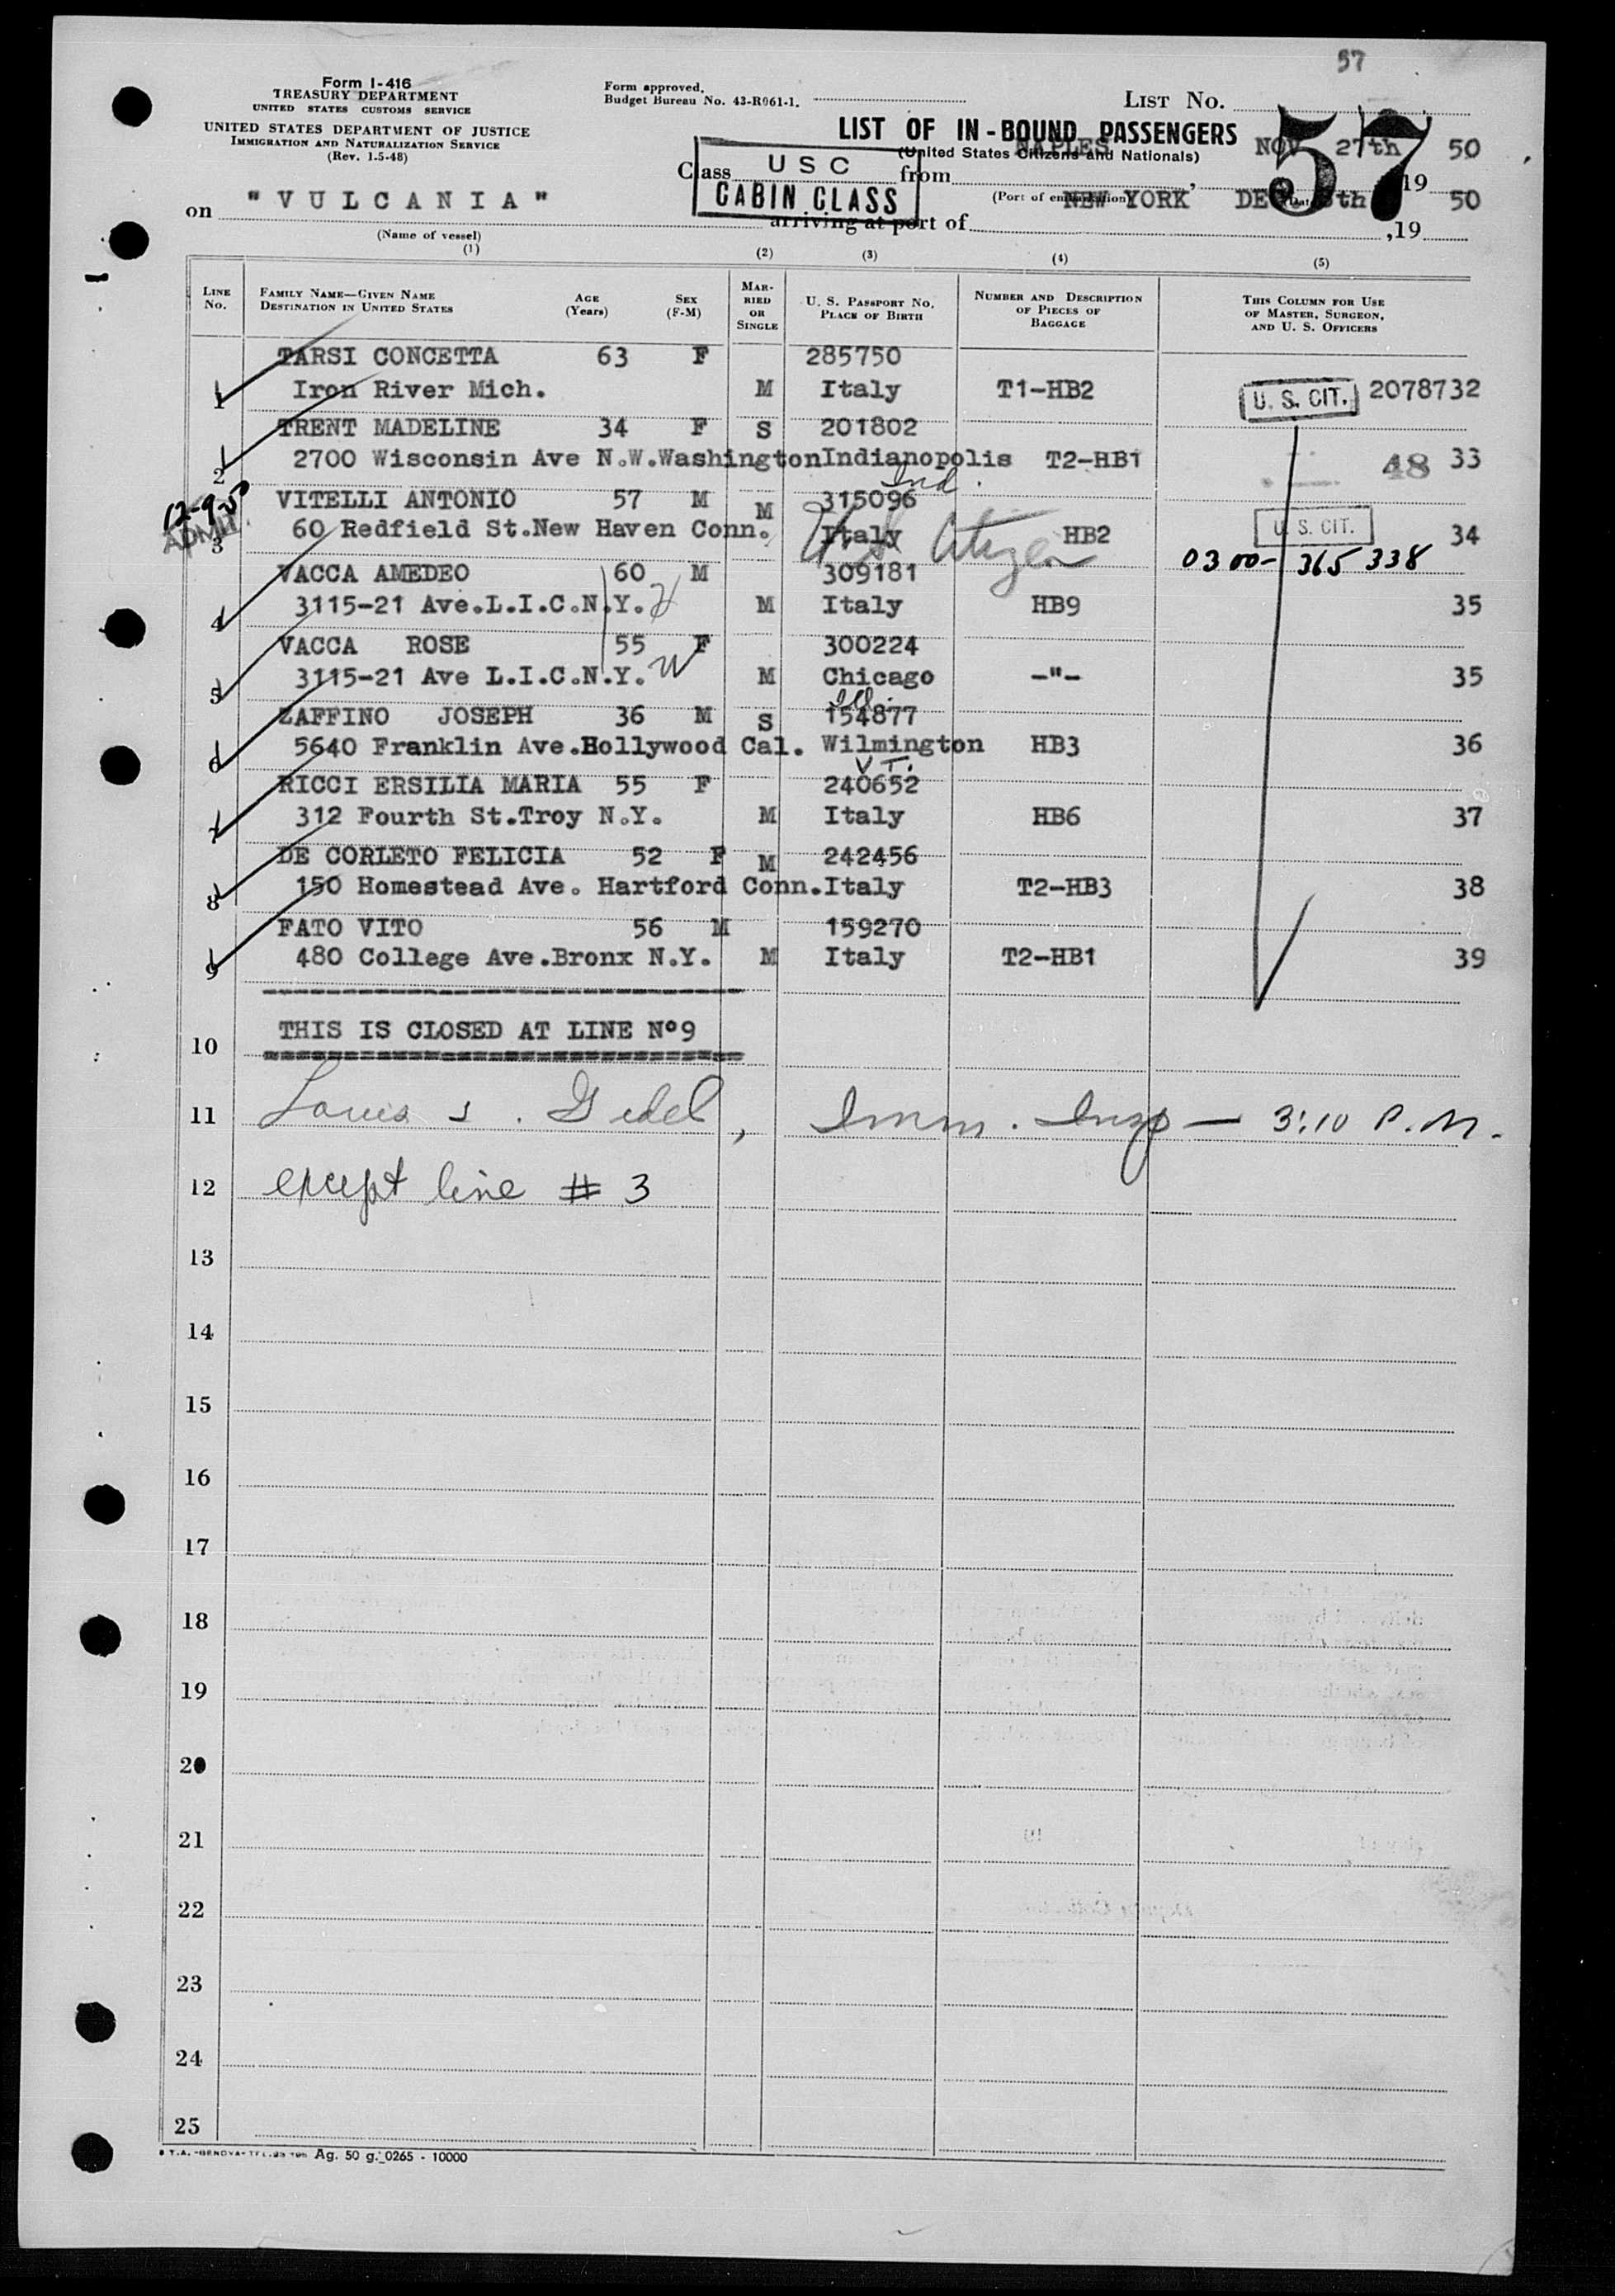 57
Form I-416
TREASURY DEPARTMENT
UNITED STATES CUSTOMS SERVICE
UNITED STATES DEPARTMENT OF JUSTICE
IMMIGRATION AND NATURALIZATION SERVICE
(Rev. 1-5-48)
Form approved.
Budget Bureau No. 43-R061-1.
LIST No.
57
LIST OF IN-BOUND PASSENGERS
(United States Citizens and Nationals)
Class USC from NAPLES, NOV 27th 19 50
CABIN CLASS
(Port of embarkation) (Date)
on "VULCANIA" arriving at port of NEW YORK DEC. 8th, 19 50
(Name of vessel)
(1) (2) (3) (4) (5)
LINE No.
FAMILY NAME—GIVEN NAME
DESTINATION IN UNITED STATES
AGE (Years)
SEX (F-M)
MARRIED OR SINGLE
U. S. PASSPORT NO.
PLACE OF BIRTH
NUMBER AND DESCRIPTION OF PIECES OF BAGGAGE
THIS COLUMN FOR USE OF MASTER, SURGEON, AND U. S. OFFICERS
TARSI CONCETTA 63 F 285750
1 Iron River Mich. M Italy T1-HB2 U. S. CIT. 2078732
TRENT MADELINE 34 F S 201802
2 2700 Wisconsin Ave N.W.Washington Indianopolis T2-HB1 48 33
Ind.
12-9-50 VITELLI ANTONIO 57 M M 315096
ADMIT.
3 60 Redfield St.New Haven Conn. Italy HB2 U. S. CIT. 34
U.S. Citizen
0300-365 338
VACCA AMEDEO 60 M 309181
4 3115-21 Ave.L.I.C.N.Y. H M Italy HB9 35
VACCA ROSE 55 F 300224
5 3115-21 Ave L.I.C.N.Y. W M Chicago -"- 35
Ill.
ZAFFINO JOSEPH 36 M S 154877
6 5640 Franklin Ave.Hollywood Cal. Wilmington HB3 36
VT.
RICCI ERSILIA MARIA 55 F 240652
7 312 Fourth St.Troy N.Y. M Italy HB6 37
DE CORLETO FELICIA 52 F M 242456
8 150 Homestead Ave. Hartford Conn.Italy T2-HB3 38
FATO VITO 56 M 159270
9 480 College Ave.Bronx N.Y. M Italy T2-HB1 39
10 THIS IS CLOSED AT LINE Nº9
11 Louis J. Gidel, Imm. Insp — 3:10 P.M.
12 except line # 3
13
14
15
16
17
18
19
20
21
22
23
24
25
Ag. 50 g. 0265 - 10000